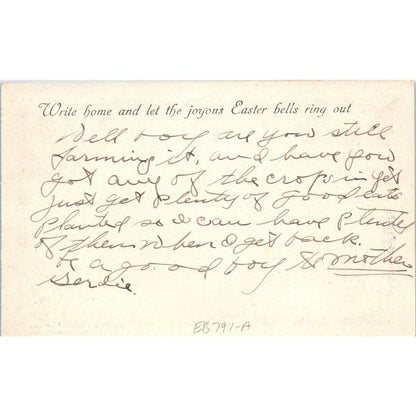 Write home and let the joyous Easter bells ring out
Well boy are you still
farming it, and have you
got any of the crops in yet
just get plenty of good eats
planted so I can have plenty
of them when I get back.
Be a good boy to mother
Gerdie.
EB791-A